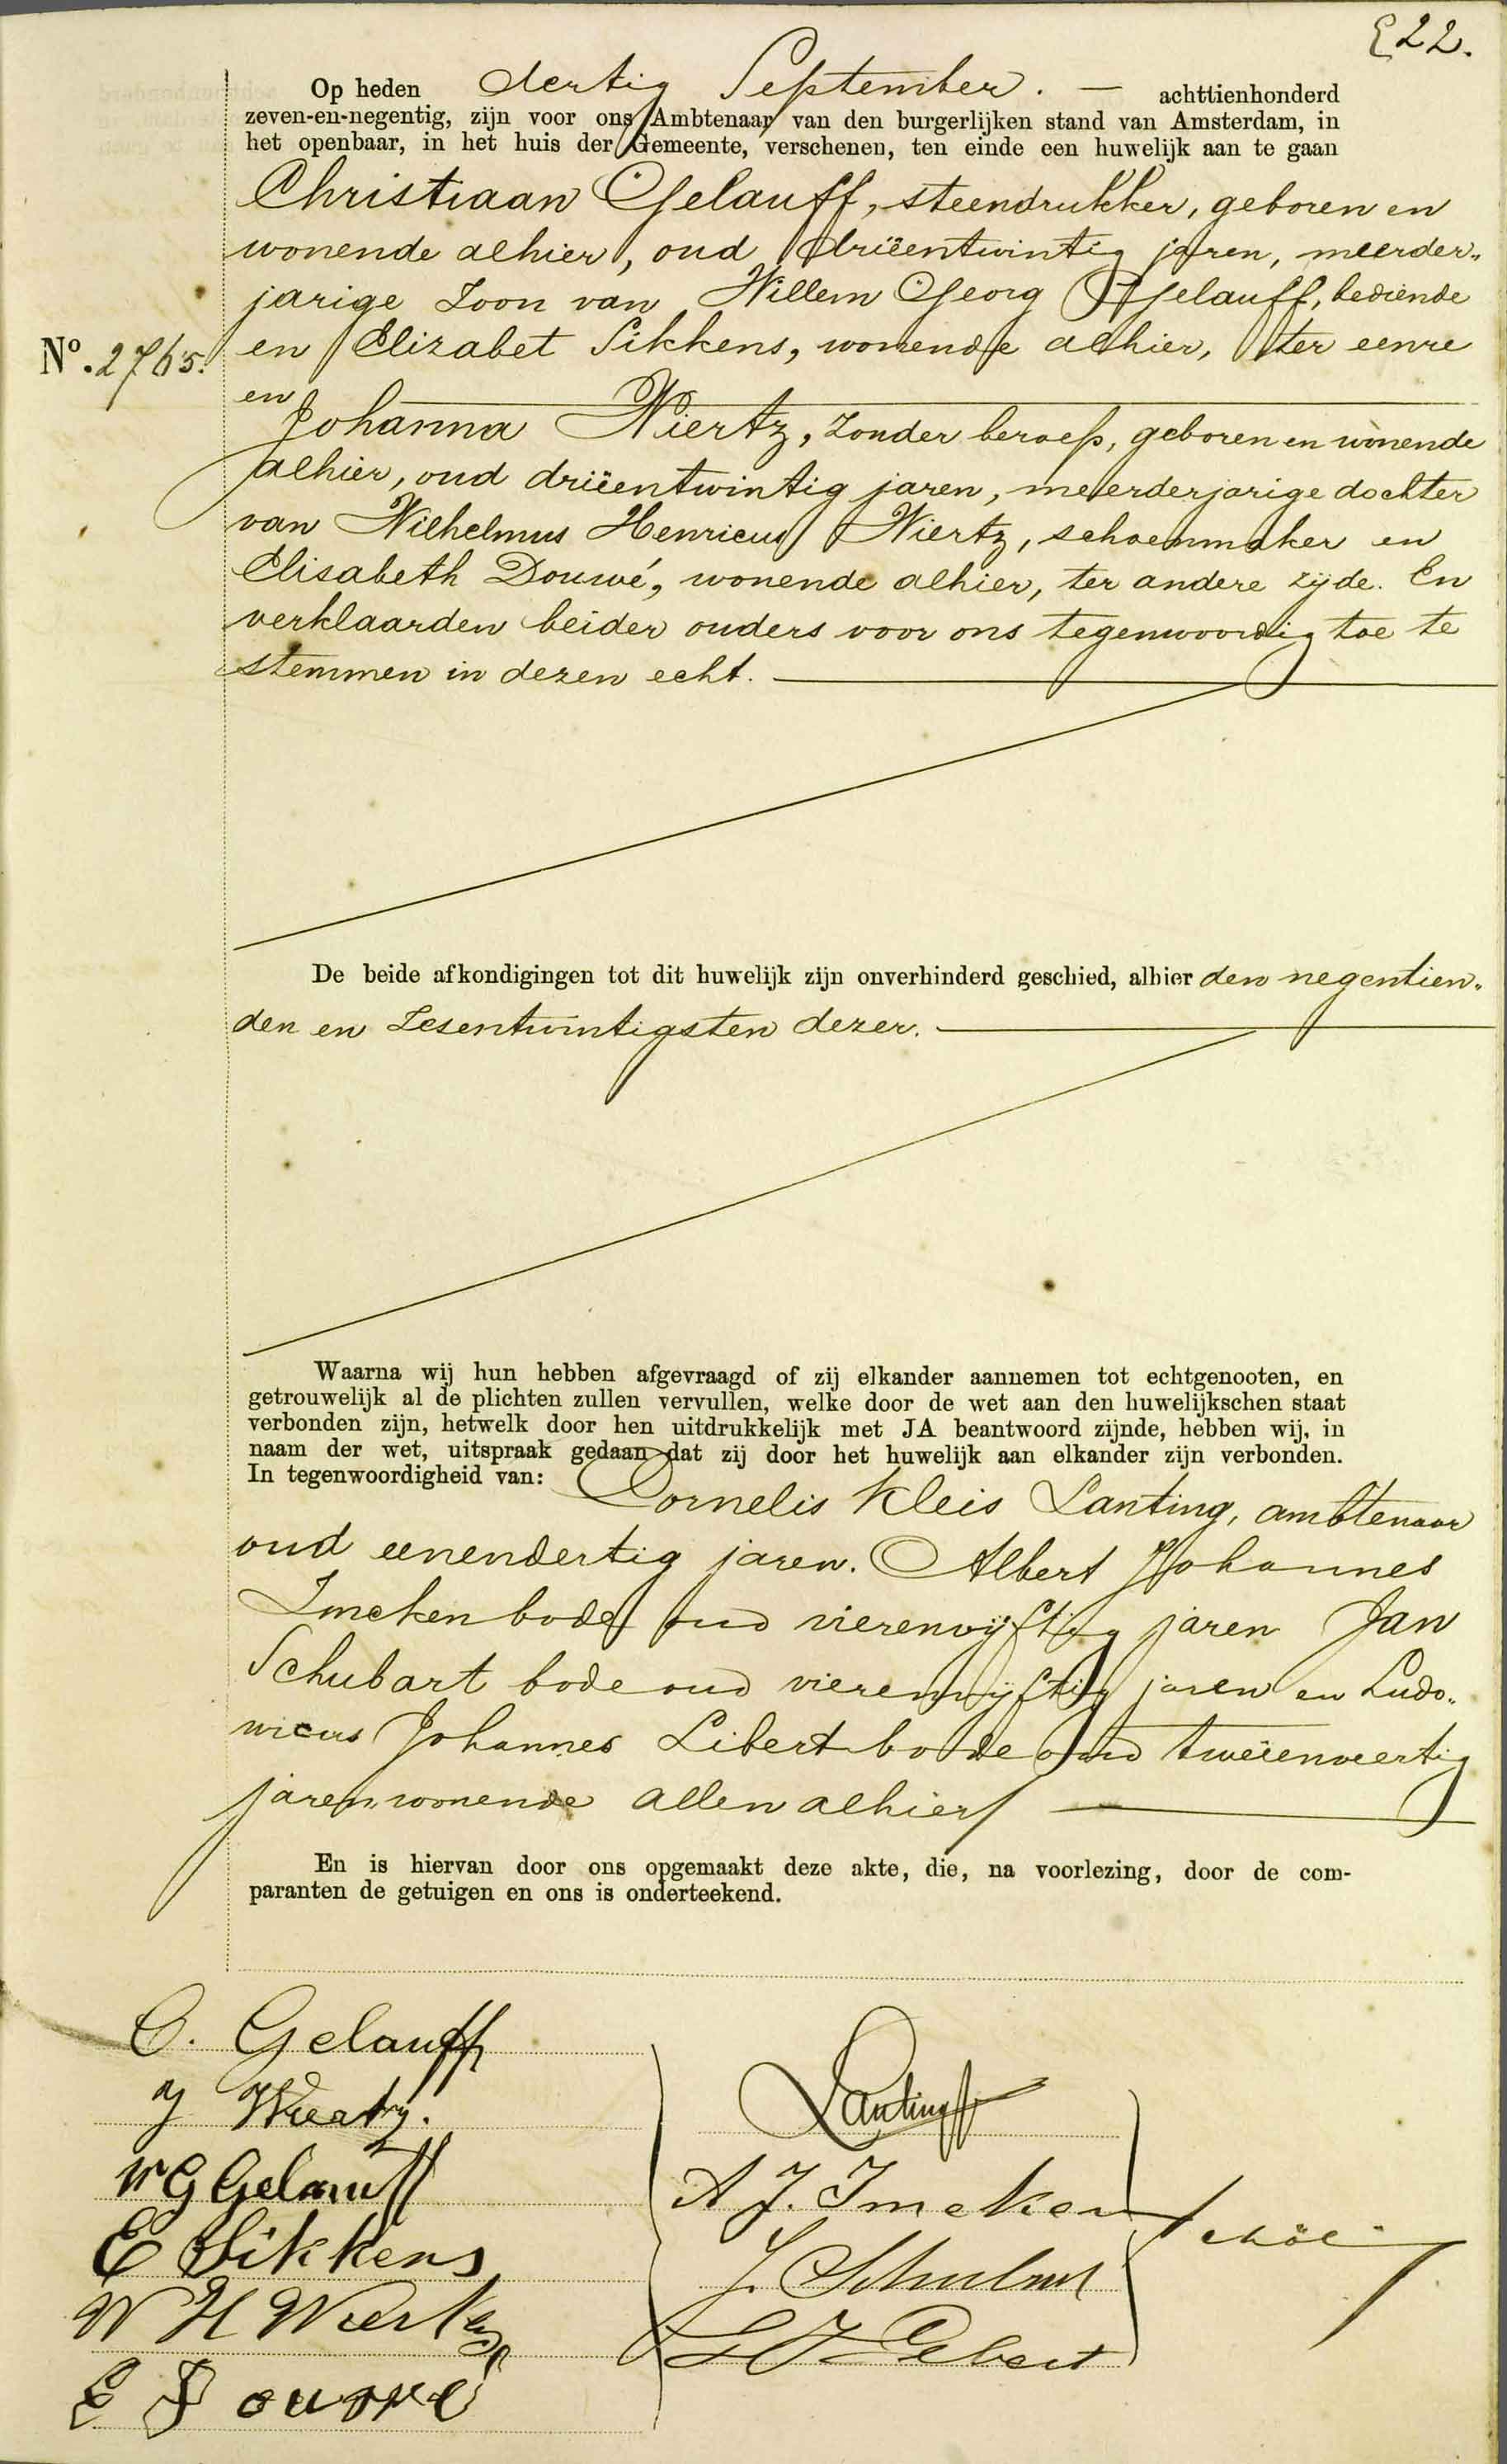 E22.
Op heden dertig September. — achttienhonderd
zeven-en-negentig, zijn voor ons Ambtenaar van den burgerlijken stand van Amsterdam, in
het openbaar, in het huis der Gemeente, verschenen, ten einde een huwelijk aan te gaan
Christiaan Gelauff, steendrukker, geboren en
wonende alhier, oud drieëntwintig jaren, meerder„
jarige Zoon van Willem Georg Gelauff, bediende
No. 2765. en Elizabet Sikkens, wonende alhier, ter eenre
en
Johanna Wiertz, Zonder beroep, geboren en wonende
alhier, oud drieëntwintig jaren, meerderjarige dochter
van Wilhelmus Henricus Wiertz, schoenmaker en
Elisabeth Douwé, wonende alhier, ter andere zijde. En
verklaarden beider ouders voor ons tegenwoordig toe te
stemmen in dezen echt.
De beide afkondigingen tot dit huwelijk zijn onverhinderd geschied, alhier den negentien„
den en Zesentwintigsten dezer.
Waarna wij hun hebben afgevraagd of zij elkander aannemen tot echtgenooten, en
getrouwelijk al de plichten zullen vervullen, welke door de wet aan den huwelijkschen staat
verbonden zijn, hetwelk door hen uitdrukkelijk met JA beantwoord zijnde, hebben wij, in
naam der wet, uitspraak gedaan dat zij door het huwelijk aan elkander zijn verbonden.
In tegenwoordigheid van: Cornelis Kleis Lanting, ambtenaar
oud eenendertig jaren. Albert Johannes
Imeken bode oud vierenvijftig jaren Jan
Schubart bode oud vierenvijftig jaren en Ludo„
vicus Johannes Libert bode oud tweeenveertig
jaren, wonende allen alhier
En is hiervan door ons opgemaakt deze akte, die, na voorlezing, door de com-
paranten de getuigen en ons is onderteekend.
C. Gelauff
J Wiertz.
WG Gelauff
E Sikkens
W H Wiertz
E Douwé
Lanting
A J. Imeken
J. Schubart
L J Libert